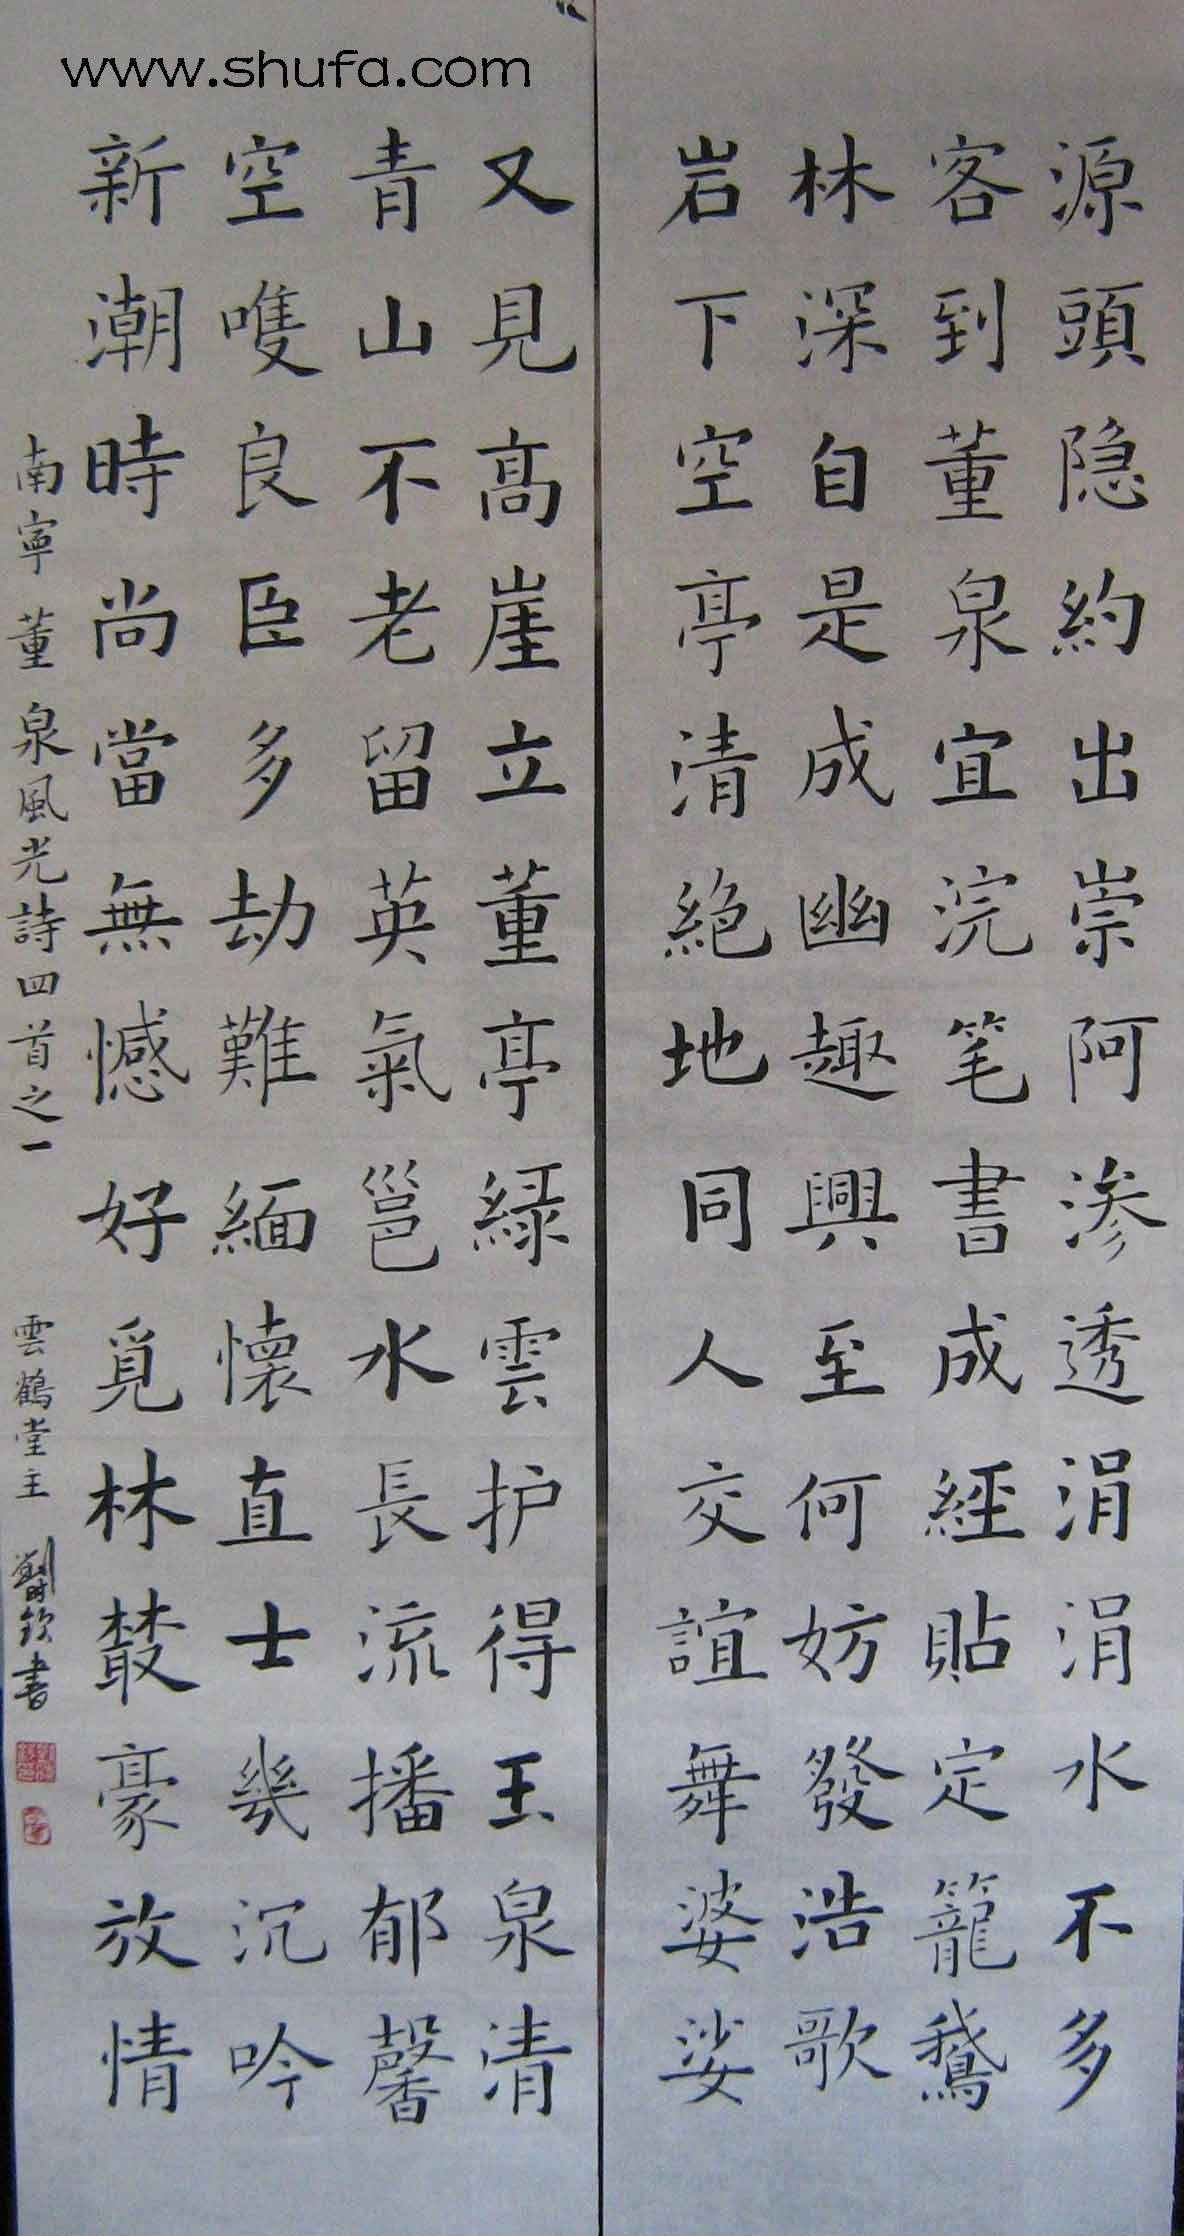 www.shufa.com
源頭隐約出崇阿渗透涓涓水不多
客到董泉宜浣笔書成經貼定籠鵝
林深自是成幽趣興至何妨發浩歌
岩下空亭清絶地同人交誼舞婆娑
又見高崖立董亭綠雲护得玉泉清
青山不老留英氣邕水長流播郁馨
空嘆良臣多劫難緬懷直士幾沉吟
新潮時尚當無憾好覓林叢豪放情
南寧董泉風光詩四首之一
雲鶴堂主劉時欽書